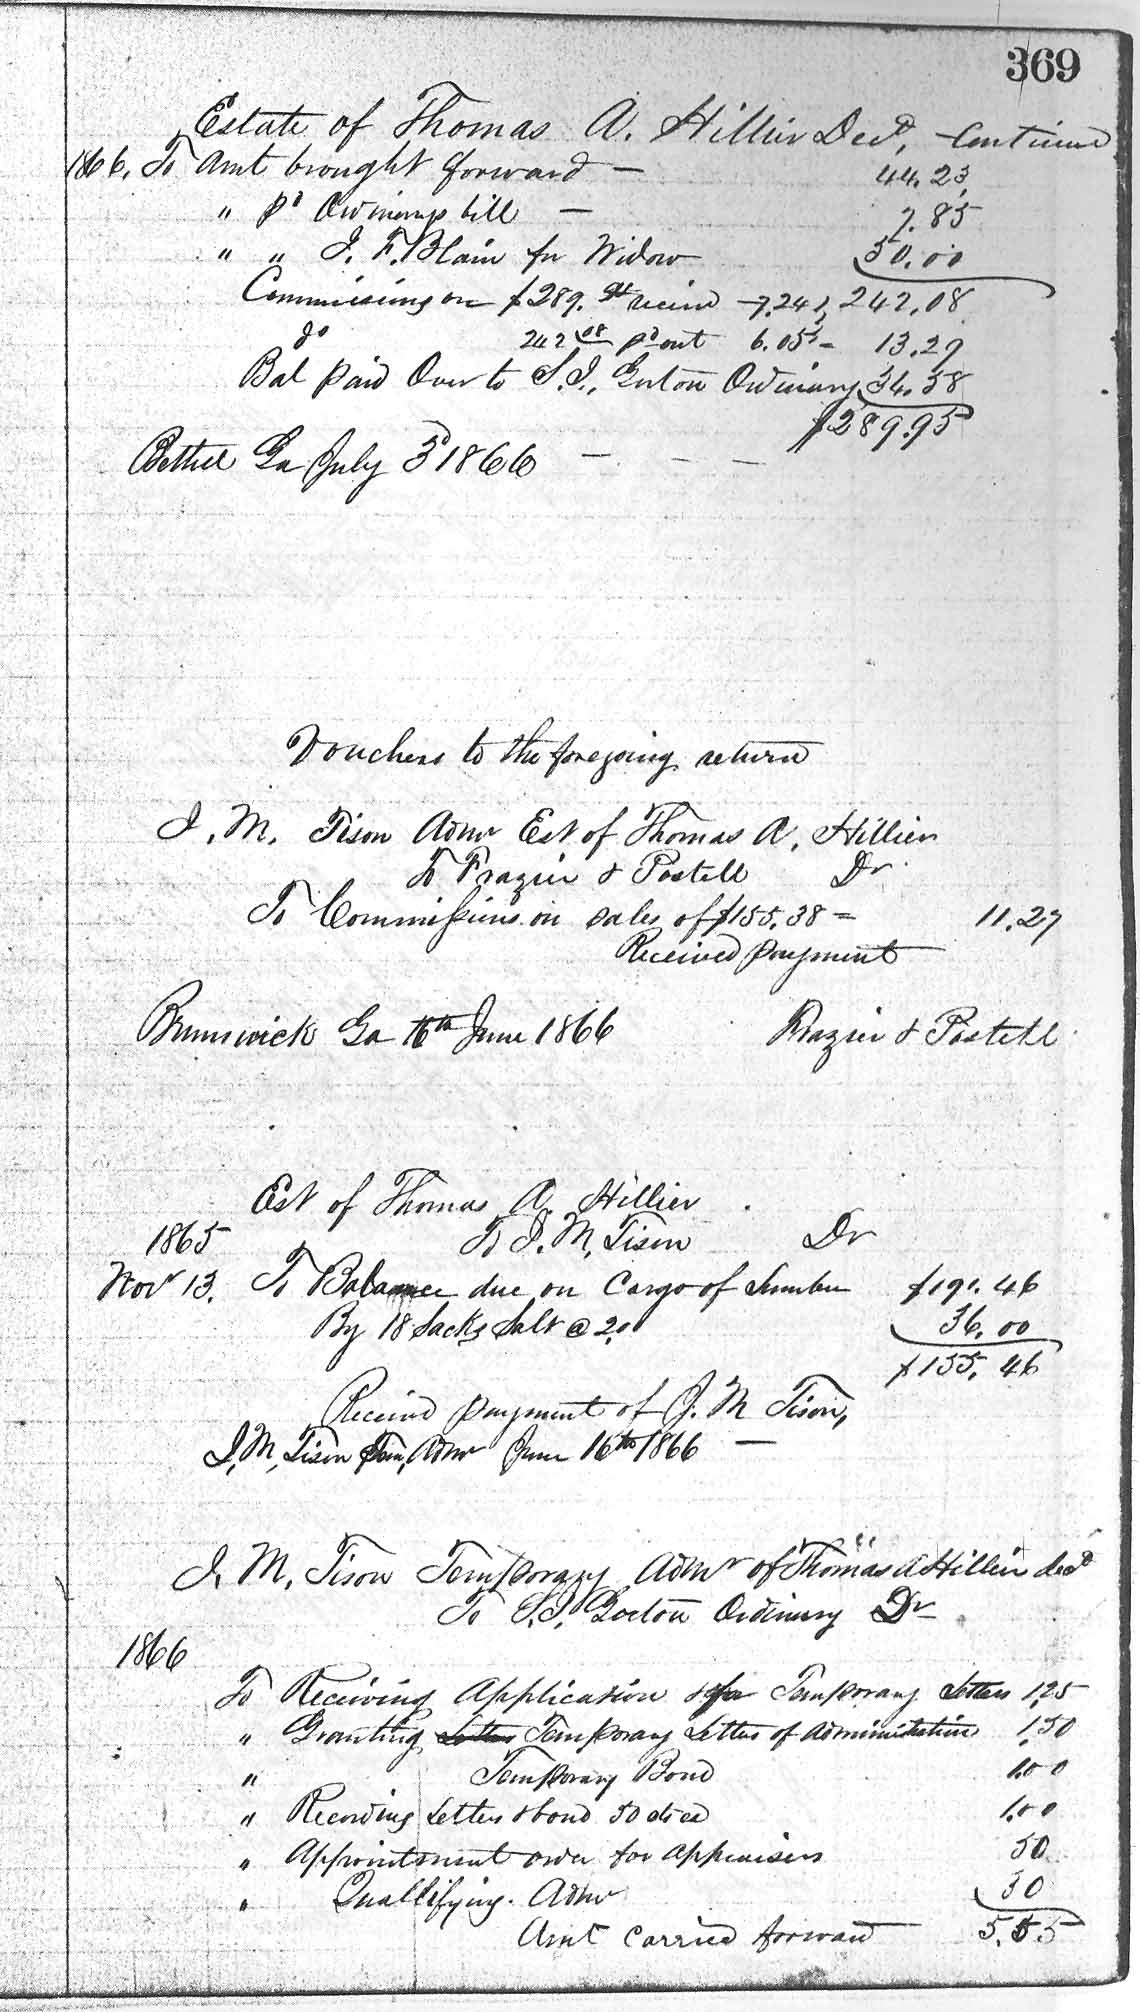 369
Estate of Thomas A. Hillier Decd, Continued
1866. To Amt brought forward — 44.23
" pd Ordinarys bill — 7.85
" " J. F. Blain for Widow 50.00
Commissions on $289. recivd 7.24 242.08
do 242 08 pd out 6.05 = 13.29
Bal paid Over to S. J. Gorton Ordinary 34.58
$289.95
Bethel Ga July 3d 1866 — — —
Vouchers to the foregoing return
J. M. Tison Admr Est of Thomas A. Hillier
To Frazier & Postell Dr
To Commissions on sales of $155.38 = 11.27
Received payment
Brunswick Ga 16th June 1866 Frazier & Postell
Est of Thomas A. Hillier
1865 To J. M. Tison Dr
Nov 13. To Balance due on Cargo of Lumber $191.46
By 18 Sacks Salt @ 2.00 36.00
$155.46
Received payment of J. M Tison,
J. M. Tison Tem, Admr June 16th 1866 —
J. M. Tison Temporary Admr of Thomas A Hillier decd
To S. J. Gorton Ordinary Dr
1866
To Receiving Application for Temporary Letters 1.25
" Granting Letters Temporary Letters of Administration 1.50
" Temporary Bond 1.00
" Recording Letters & bond 50 cts ea 1.00
" Appointment order for appraisers 50
" Quallifying Admr 30
Amt carried forward 5.55